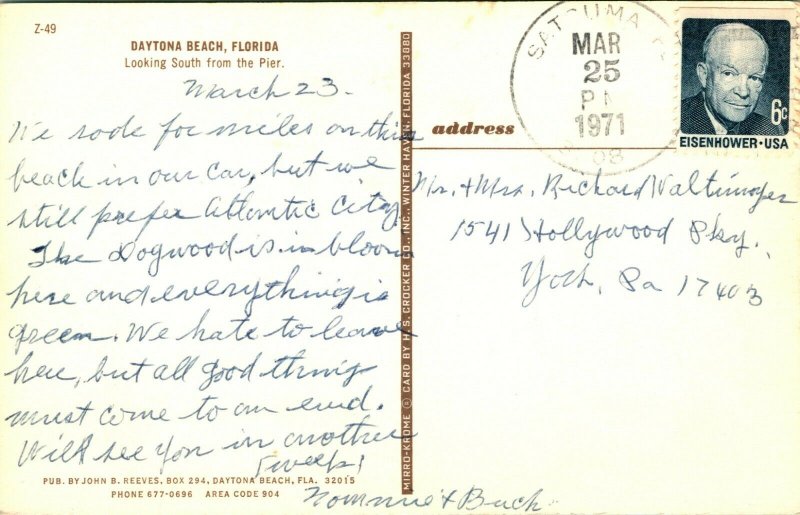 Z-49
DAYTONA BEACH, FLORIDA
Looking South from the Pier.
March 23-
We rode for miles on this
beach in our car, but we
still prefer Atlantic City.
The Dogwood is in bloom
here and everything is
green. We hate to leave
here, but all good things
must come to an end.
Will see you in another
week
PUB. BY JOHN B. REEVES. BOX 294, DAYTONA BEACH, FLA. 32015
PHONE 677-0696 AREA CODE 904
& Buck
MIRRO-KROME ® CARD BY H. S. CROCKER CO., INC., WINTER HAVEN, FLORIDA 33880
address
SATSUMA
MAR
25
PM
1971
EISENHOWER·USA
6c
Mr. + Mrs. Richard Waltimyer
1541 Hollywood Pky.
York, Pa 17403